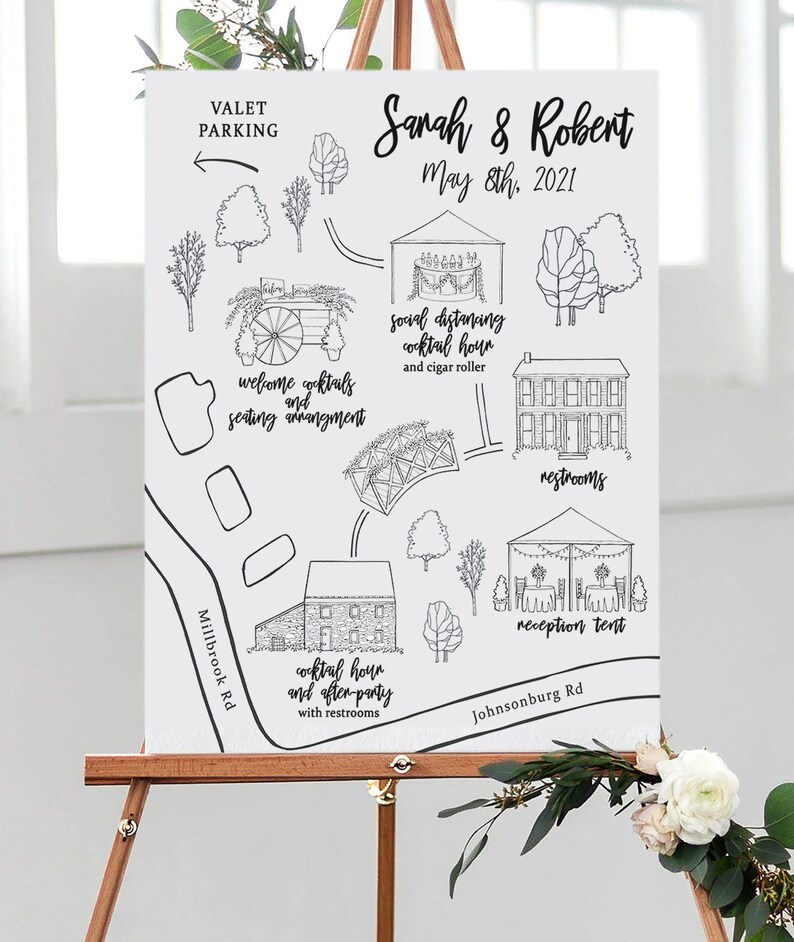 VALET
PARKING
Sarah & Robert
May 8th, 2021
social distancing
cocktail hour
and cigar roller
welcome cocktails
and
seating arrangment
restrooms
reception tent
Millbrook Rd
cocktail hour
and after-party
with restrooms
Johnsonburg Rd